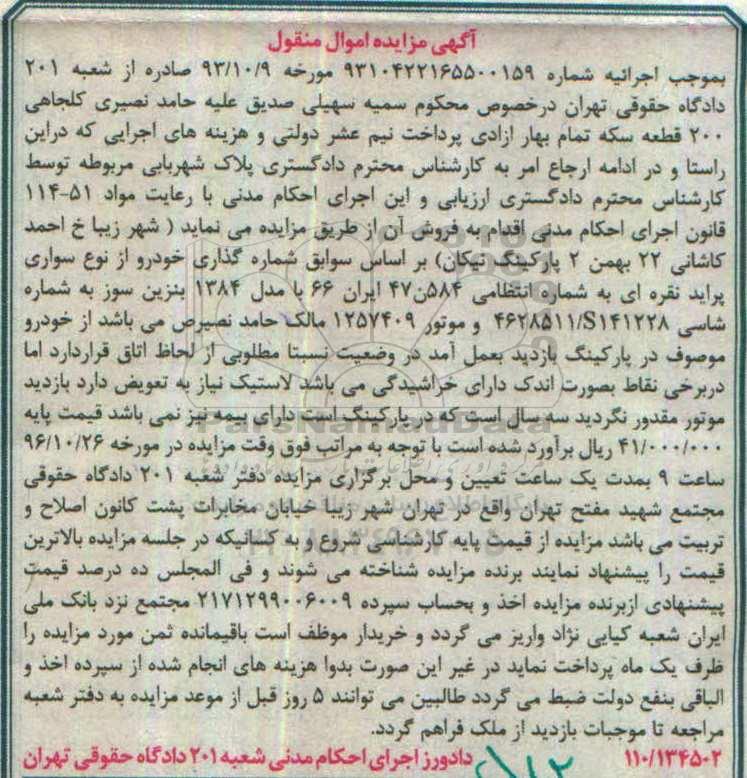 آگهی مزایده اموال منقول
بموجب اجرائیه شماره ۹۳۱۰۴۲۲۱۶۵۵۰۰۱۵۹ مورخه ۹۳/۱۰/۹ صادره از شعبه ۲۰۱
دادگاه حقوقی تهران درخصوص محکوم سمیه سهیلی صدیق علیه حامد نصیری کلجاهی
۲۰۰ قطعه سکه تمام بهار ازادی پرداخت نیم عشر دولتی و هزینه های اجرایی که دراین
راستا و در ادامه ارجاع امر به کارشناس محترم دادگستری پلاک شهربابی مربوطه توسط
کارشناس محترم دادگستری ارزیابی و این اجرای احکام مدنی با رعایت مواد ۵۱-۱۱۴
قانون اجرای احکام مدنی اقدام به فروش آن از طریق مزایده می نماید ( شهر زیبا خ احمد
کاشانی ۲۲ بهمن ۲ پارکینگ نیکان) بر اساس سوابق شماره گذاری خودرو از نوع سواری
پراید نقره ای به شماره انتظامی ۵۸۴ن۴۷ ایران ۶۶ با مدل ۱۳۸۴ بنزین سوز به شماره
شاسی ۴۶۲۸۵۱۱/S۱۴۱۲۲۸ و موتور ۱۲۵۷۴۰۹ مالک حامد نصیرص می باشد از خودرو
موصوف در پارکینگ بازدید بعمل آمد در وضعیت نسبتا مطلوبی از لحاظ اتاق قراردارد اما
دربرخی نقاط بصورت اندک دارای خراشیدگی می باشد لاستیک نیاز به تعویض دارد بازدید
موتور مقدور نگردید سه سال است که در پارکینگ است دارای بیمه نیز نمی باشد قیمت پایه
۴۱/۰۰۰/۰۰۰ ریال برآورد شده است با توجه به مراتب فوق وقت مزایده در مورخه ۹۶/۱۰/۲۶
ساعت ۹ بمدت یک ساعت تعیین و محل برگزاری مزایده دفتر شعبه ۲۰۱ دادگاه حقوقی
مجتمع شهید مفتح تهران واقع در تهران شهر زیبا خیابان مخابرات پشت کانون اصلاح و
تربیت می باشد مزایده از قیمت پایه کارشناسی شروع و به کسانیکه در جلسه مزایده بالاترین
قیمت را پیشنهاد نمایند برنده مزایده شناخته می شوند و فی المجلس ده درصد قیمت
پیشنهادی ازبرنده مزایده اخذ و بحساب سپرده ۲۱۷۱۲۹۹۰۰۶۰۰۹ مجتمع نزد بانک ملی
ایران شعبه کیایی نژاد واریز می گردد و خریدار موظف است باقیمانده ثمن مورد مزایده را
ظرف یک ماه پرداخت نماید در غیر این صورت بدوا هزینه های انجام شده از سپرده اخذ و
الباقی بنفع دولت ضبط می گردد طالبین می توانند ۵ روز قبل از موعد مزایده به دفتر شعبه
مراجعه تا موجبات بازدید از ملک فراهم گردد.
۱۱۰/۱۳۴۵۰۲ دادورز اجرای احکام مدنی شعبه ۲۰۱ دادگاه حقوقی تهران
ParsNamadData